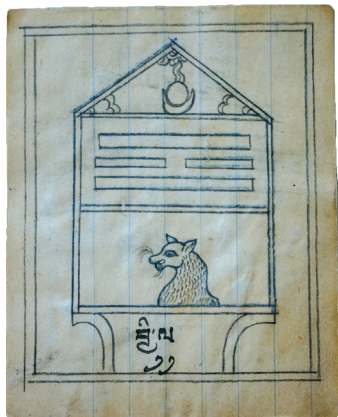 ཁྱི་ལ
༡༡